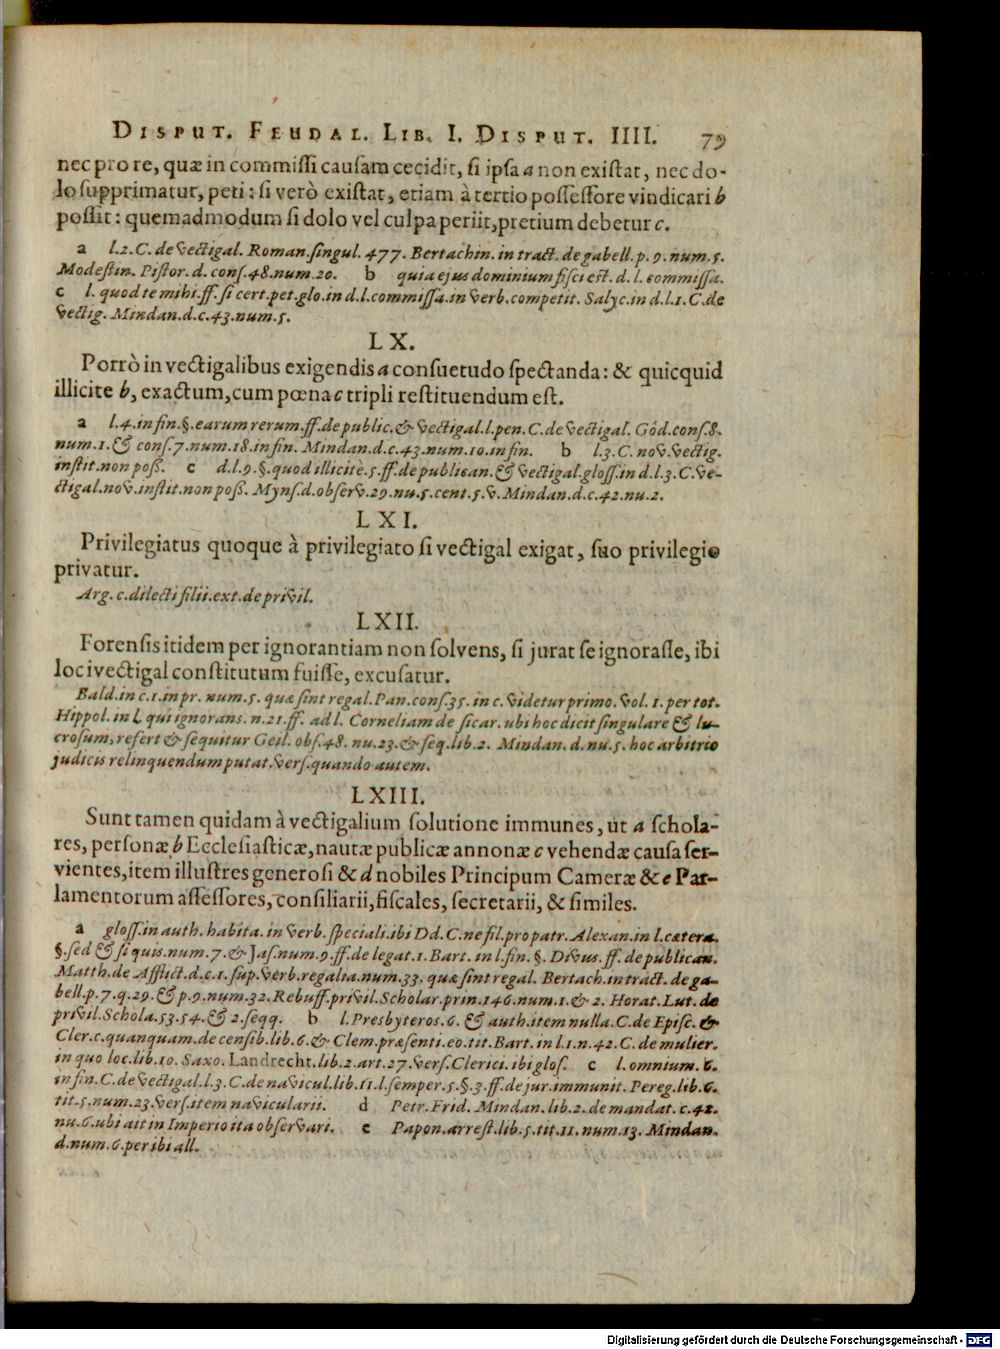 DISPUT. FEUDAL. LIB. I. DISPUT. IIII. 79
nec pro re, quæ in commiſſi cauſam cecidit, ſi ipſa a non exiſtat, nec do-
lo ſupprimatur, peti: ſi verò exiſtat, etiam à tertio poſſeſſore vindicari b
poſſit: quemadmodum ſi dolo vel culpa periit, pretium debetur c.
a l.2. C. de vectigal. Roman. ſingul. 477. Bertachin. in tract. de gabell. p. 9. num. 5.
Modeſtin. Piſtor. d. conſ. 48. num. 20. b quia ejus dominium fiſci eſt. d. l. commiſſa.
c l. quod te mihi. ff. ſi cert. pet. glo. in d. l. commiſſa. in verb. competit. Salyc. in d. l. 1. C. de
vectig. Mindan. d. c. 43. num. 5.
LX.
Porrò in vectigalibus exigendis a conſuetudo ſpectanda: & quicquid
illicite b, exactum, cum pœna c tripli reſtituendum eſt.
a l. 4. in fin. §. earum rerum. ff. de public. & vectigal. l. pen. C. de vectigal. God. conſ. 8.
num. 1. & conſ. 7. num. 18. in fin. Mindan. d. c. 43. num. 10. in fin. b l. 3. C. nov. vectig.
inſtit. non poß. c d. l. 9. §. quod illicitè. 5. ff. de publican. & vectigal. gloſſ. in d. l. 3. C. ve-
ctigal. nov. inſtit. non poß. Mynſ. d. obſerv. 29. nu. 5. cent. 5. v. Mindan. d. c. 42. nu. 2.
LXI.
Privilegiatus quoque à privilegiato ſi vectigal exigat, ſuo privilegio
privatur.
Arg. c. dilecti filii. ext. de privil.
LXII.
Forenſis itidem per ignorantiam non ſolvens, ſi jurat ſe ignoraſſe, ibi
loci vectigal conſtitutum fuiſſe, excuſatur.
Bald. in c. 1. in pr. num. 5. quæ ſint regal. Pan. conſ. 35. in c. videtur primo. vol. 1. per tot.
Hippol. in l. qui ignorans. n. 21. ff. ad l. Corneliam de ſicar. ubi hoc dicit ſingulare & lu-
croſum, refert & ſequitur Geil. obſ. 48. nu. 23. & ſeq. lib. 2. Mindan. d. nu. 5. hoc arbitrio
judicis relinquendum putat. verſ. quando autem.
LXIII.
Sunt tamen quidam à vectigalium ſolutione immunes, ut a ſchola-
res, perſonæ b Eccleſiaſticæ, nautæ publicæ annonæ c vehendæ cauſa ſer-
vientes, item illuſtres generoſi & d nobiles Principum Cameræ & e Par-
lamentorum aſſeſſores, conſiliarii, fiſcales, ſecretarii, & ſimiles.
a gloſſ. in auth. habita. in verb. ſpeciali. ibi Dd. C. ne fil. pro patr. Alexan. in l. cætera.
§. ſed & ſi quis. num. 7. & Jaſ. num. 9. ff. de legat. 1. Bart. in l. fin. §. Divus. ff. de publican.
Matth. de Afflict. d. c. 1. ſup. verb. regalia. num. 33. quæ ſint regal. Bertach. in tract. de ga-
bell. p. 7. q. 29. & p. 9. num. 32. Rebuff. privil. Scholar. prin. 146. num. 1. & 2. Horat. Lut. de
privil. Schola. 53. 54. & 2. ſeqq. b l. Presbyteros. 6. & auth. item nulla. C. de Epiſc. &
Cler. c. quanquam. de cenſib. lib. 6. & Clem. præſenti. eo. tit. Bart. in l. 1. n. 42. C. de mulier.
in quo loc. lib. 10. Saxo. Landrecht. lib. 2. art. 27. verſ. Clerici. ibi gloſ. c l. omnium. 6.
in fin. C. de vectigal. l. 3. C. de navicul. lib. 11. l. ſemper. 5. §. 3. ff. de jur. immunit. Pereg. lib. 6.
tit. 5. num. 23. verſ. item navicularii. d Petr. Frid. Mindan. lib. 2. de mandat. c. 42.
nu. 6. ubi ait in Imperio ita obſervari. e Papon. arreſt. lib. 5. tit. 11. num. 13. Mindan.
d. num. 6. per ibi all.
Digitalisierung gefördert durch die Deutsche Forschungsgemeinschaft - DFG